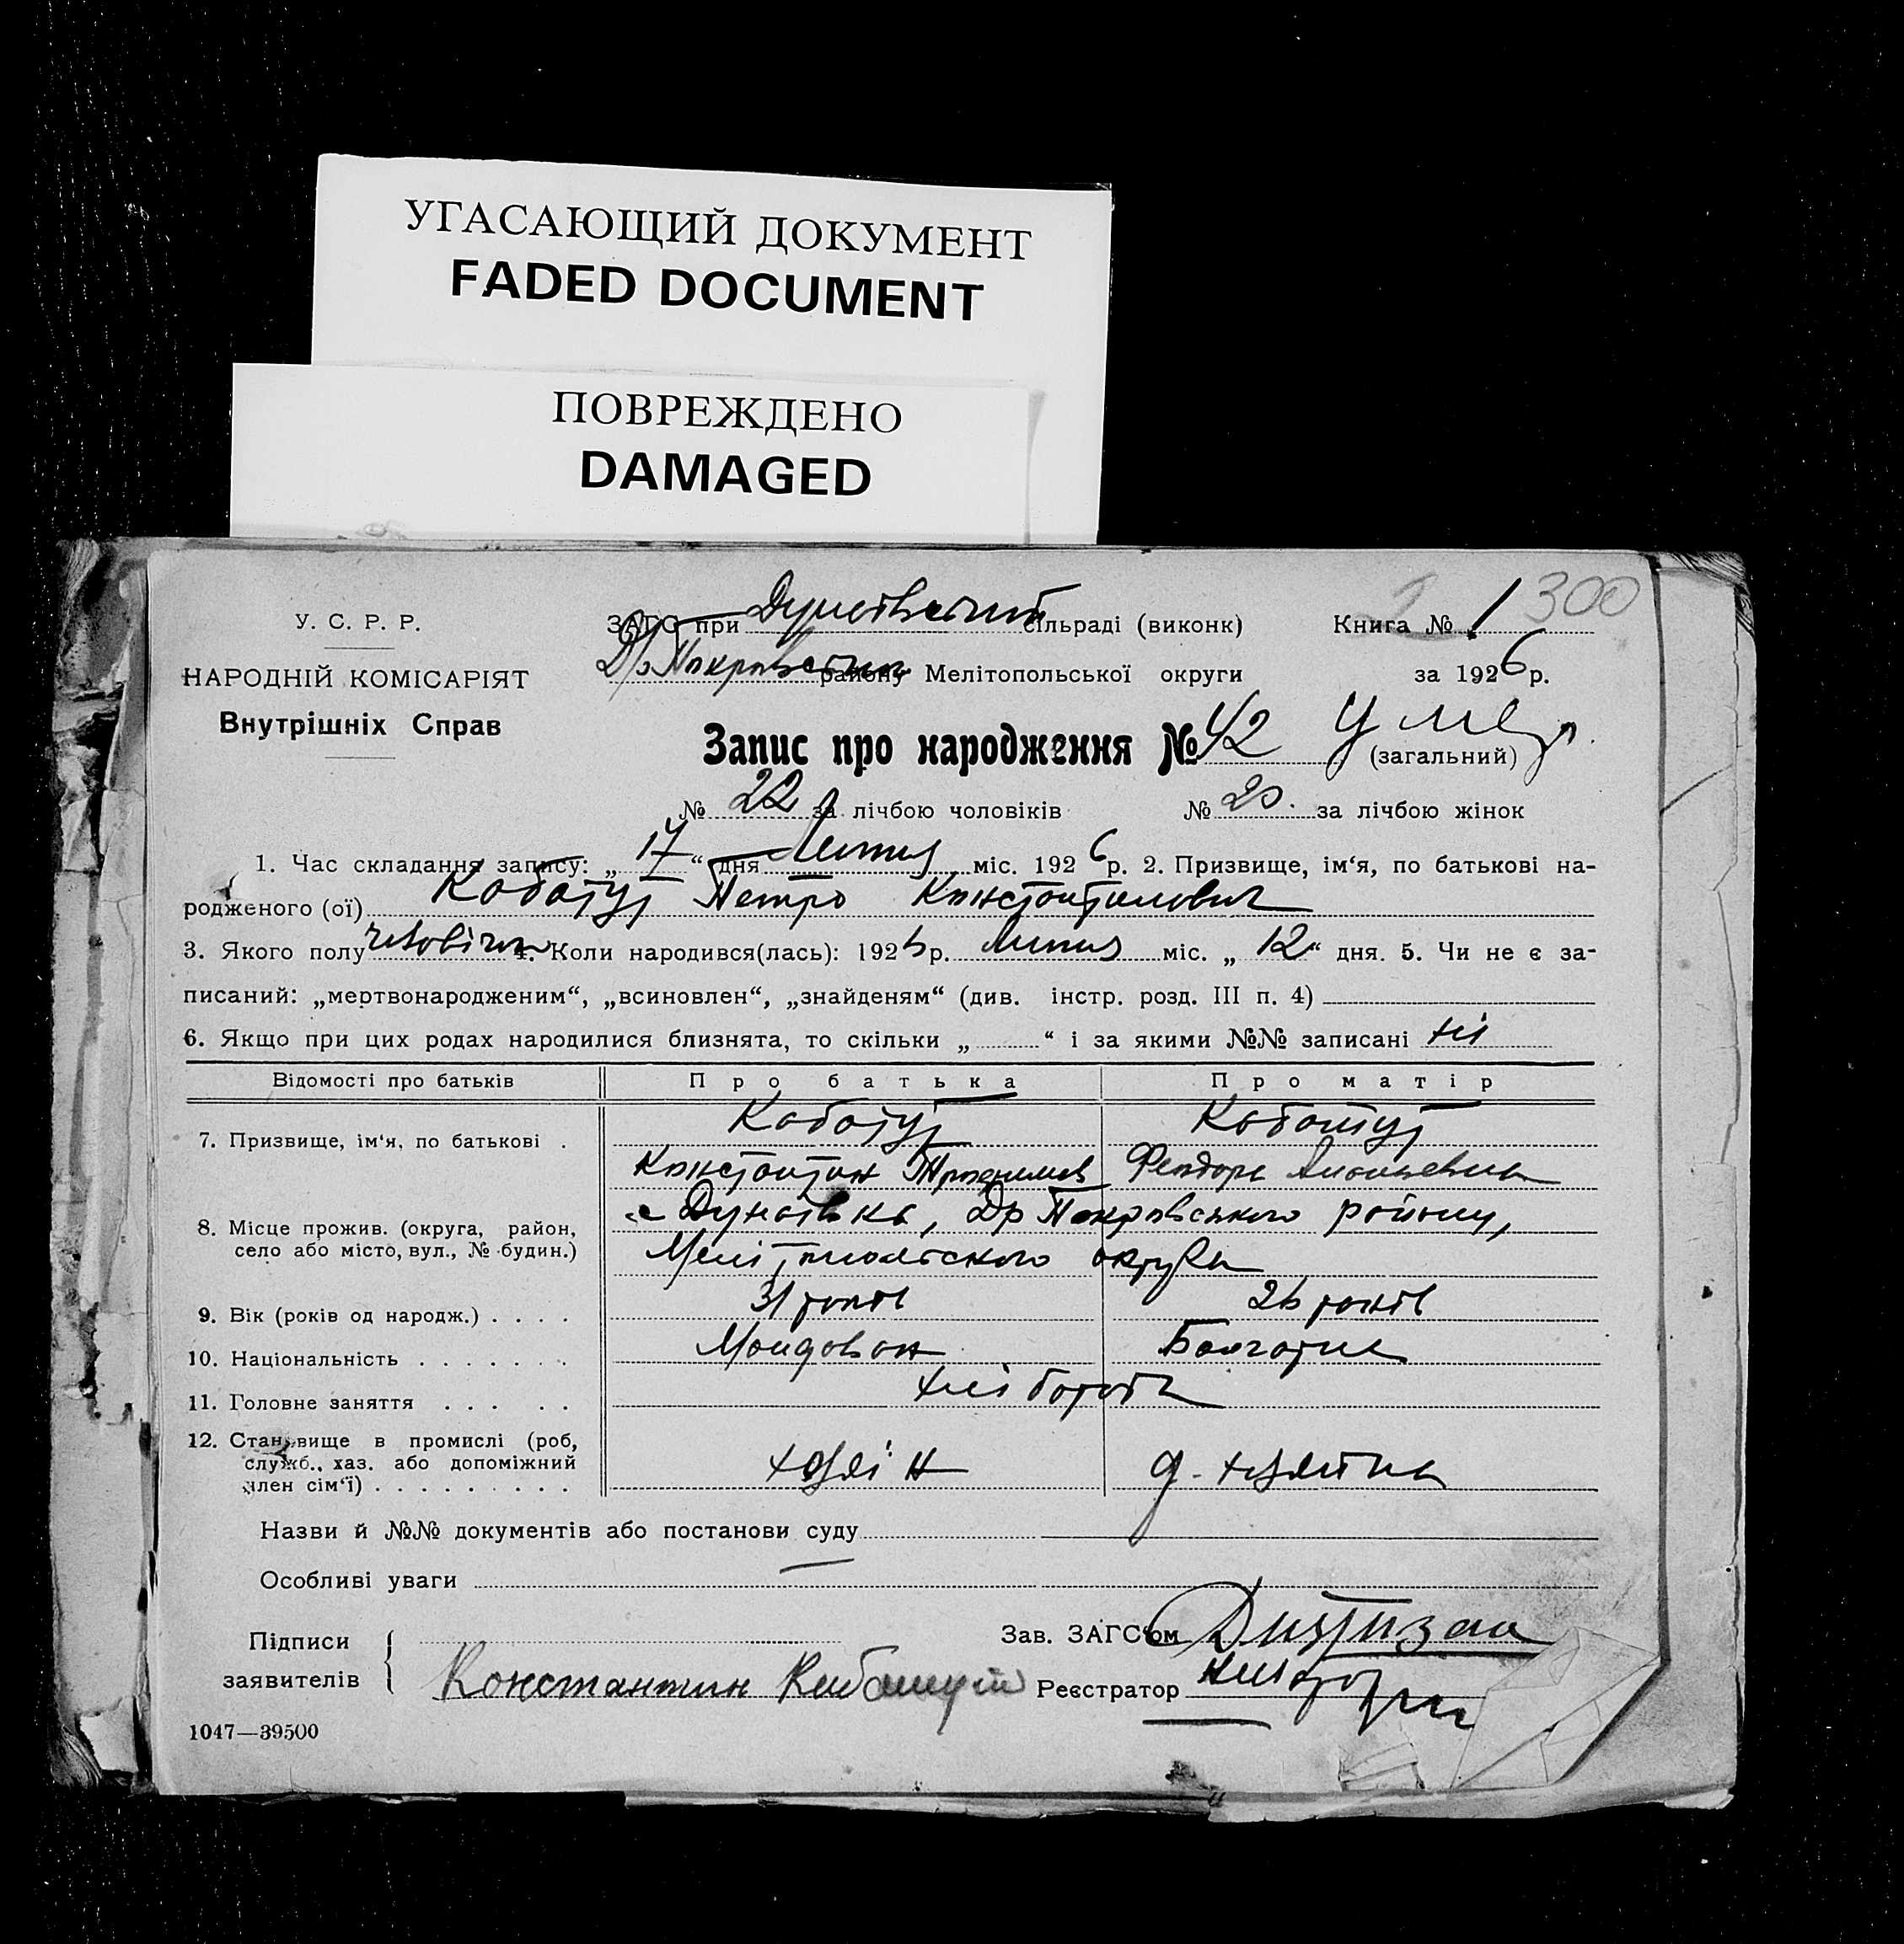 УГАСАЮЩИЙ ДОКУМЕНТ
FADED DOCUMENT
ПОВРЕЖДЕНО
DAMAGED
300
У. С. Р. Р.
НАРОДНІЙ КОМІСАРІЯТ
Внутрішніх Справ
ЗАГС при сільраді (виконк)
Книга № 1
району Мелітопольської округи
за 1926 р.
Запис про народження № 42 (загальний)
Умер
№ 22 за лічбою чоловіків № 20. за лічбою жінок
1. Час складання запису: „ 17 “ дня Липня міс. 1926 р. 2. Призвище, ім‘я, по батькові на-
родженого (ої) Кабатут Петро Константинович
3. Якого полу 4. Коли народився(лась): 1926 р. Липня міс. „ 12 “ дня. 5. Чи не є за-
писаний: „мертвонародженим“, „всиновлен“, „знайденям“ (див. інстр. розд. III п. 4)
6. Якщо при цих родах народилися близнята, то скільки „ “ і за якими №№ записані ні
Відомості про батьків Про батька Про матір
7. Призвище, ім‘я, по батькові . Кабатут
Константин Феодора
8. Місце прожив. (округа, район, село або місто, вул., № будин.) с Дунаївка, Др Покровського району,
Мелітопольского округи
9. Вік (років од народж.) . . . . 31 років 26 років
10. Національність . . . . . . . Молдован Болгарка
11. Головне заняття . . . . . хлібороб
12. Становище в промислі (роб, служб., хаз. або допоміжний член сім‘ї) . . . . . . . . . хазяїн д. хазяїна
Назви й №№ документів або постанови суду
Особливі уваги —
Підписи заявителів
Зав. ЗАГС‘ом
Константин
Реєстратор
1047—39500